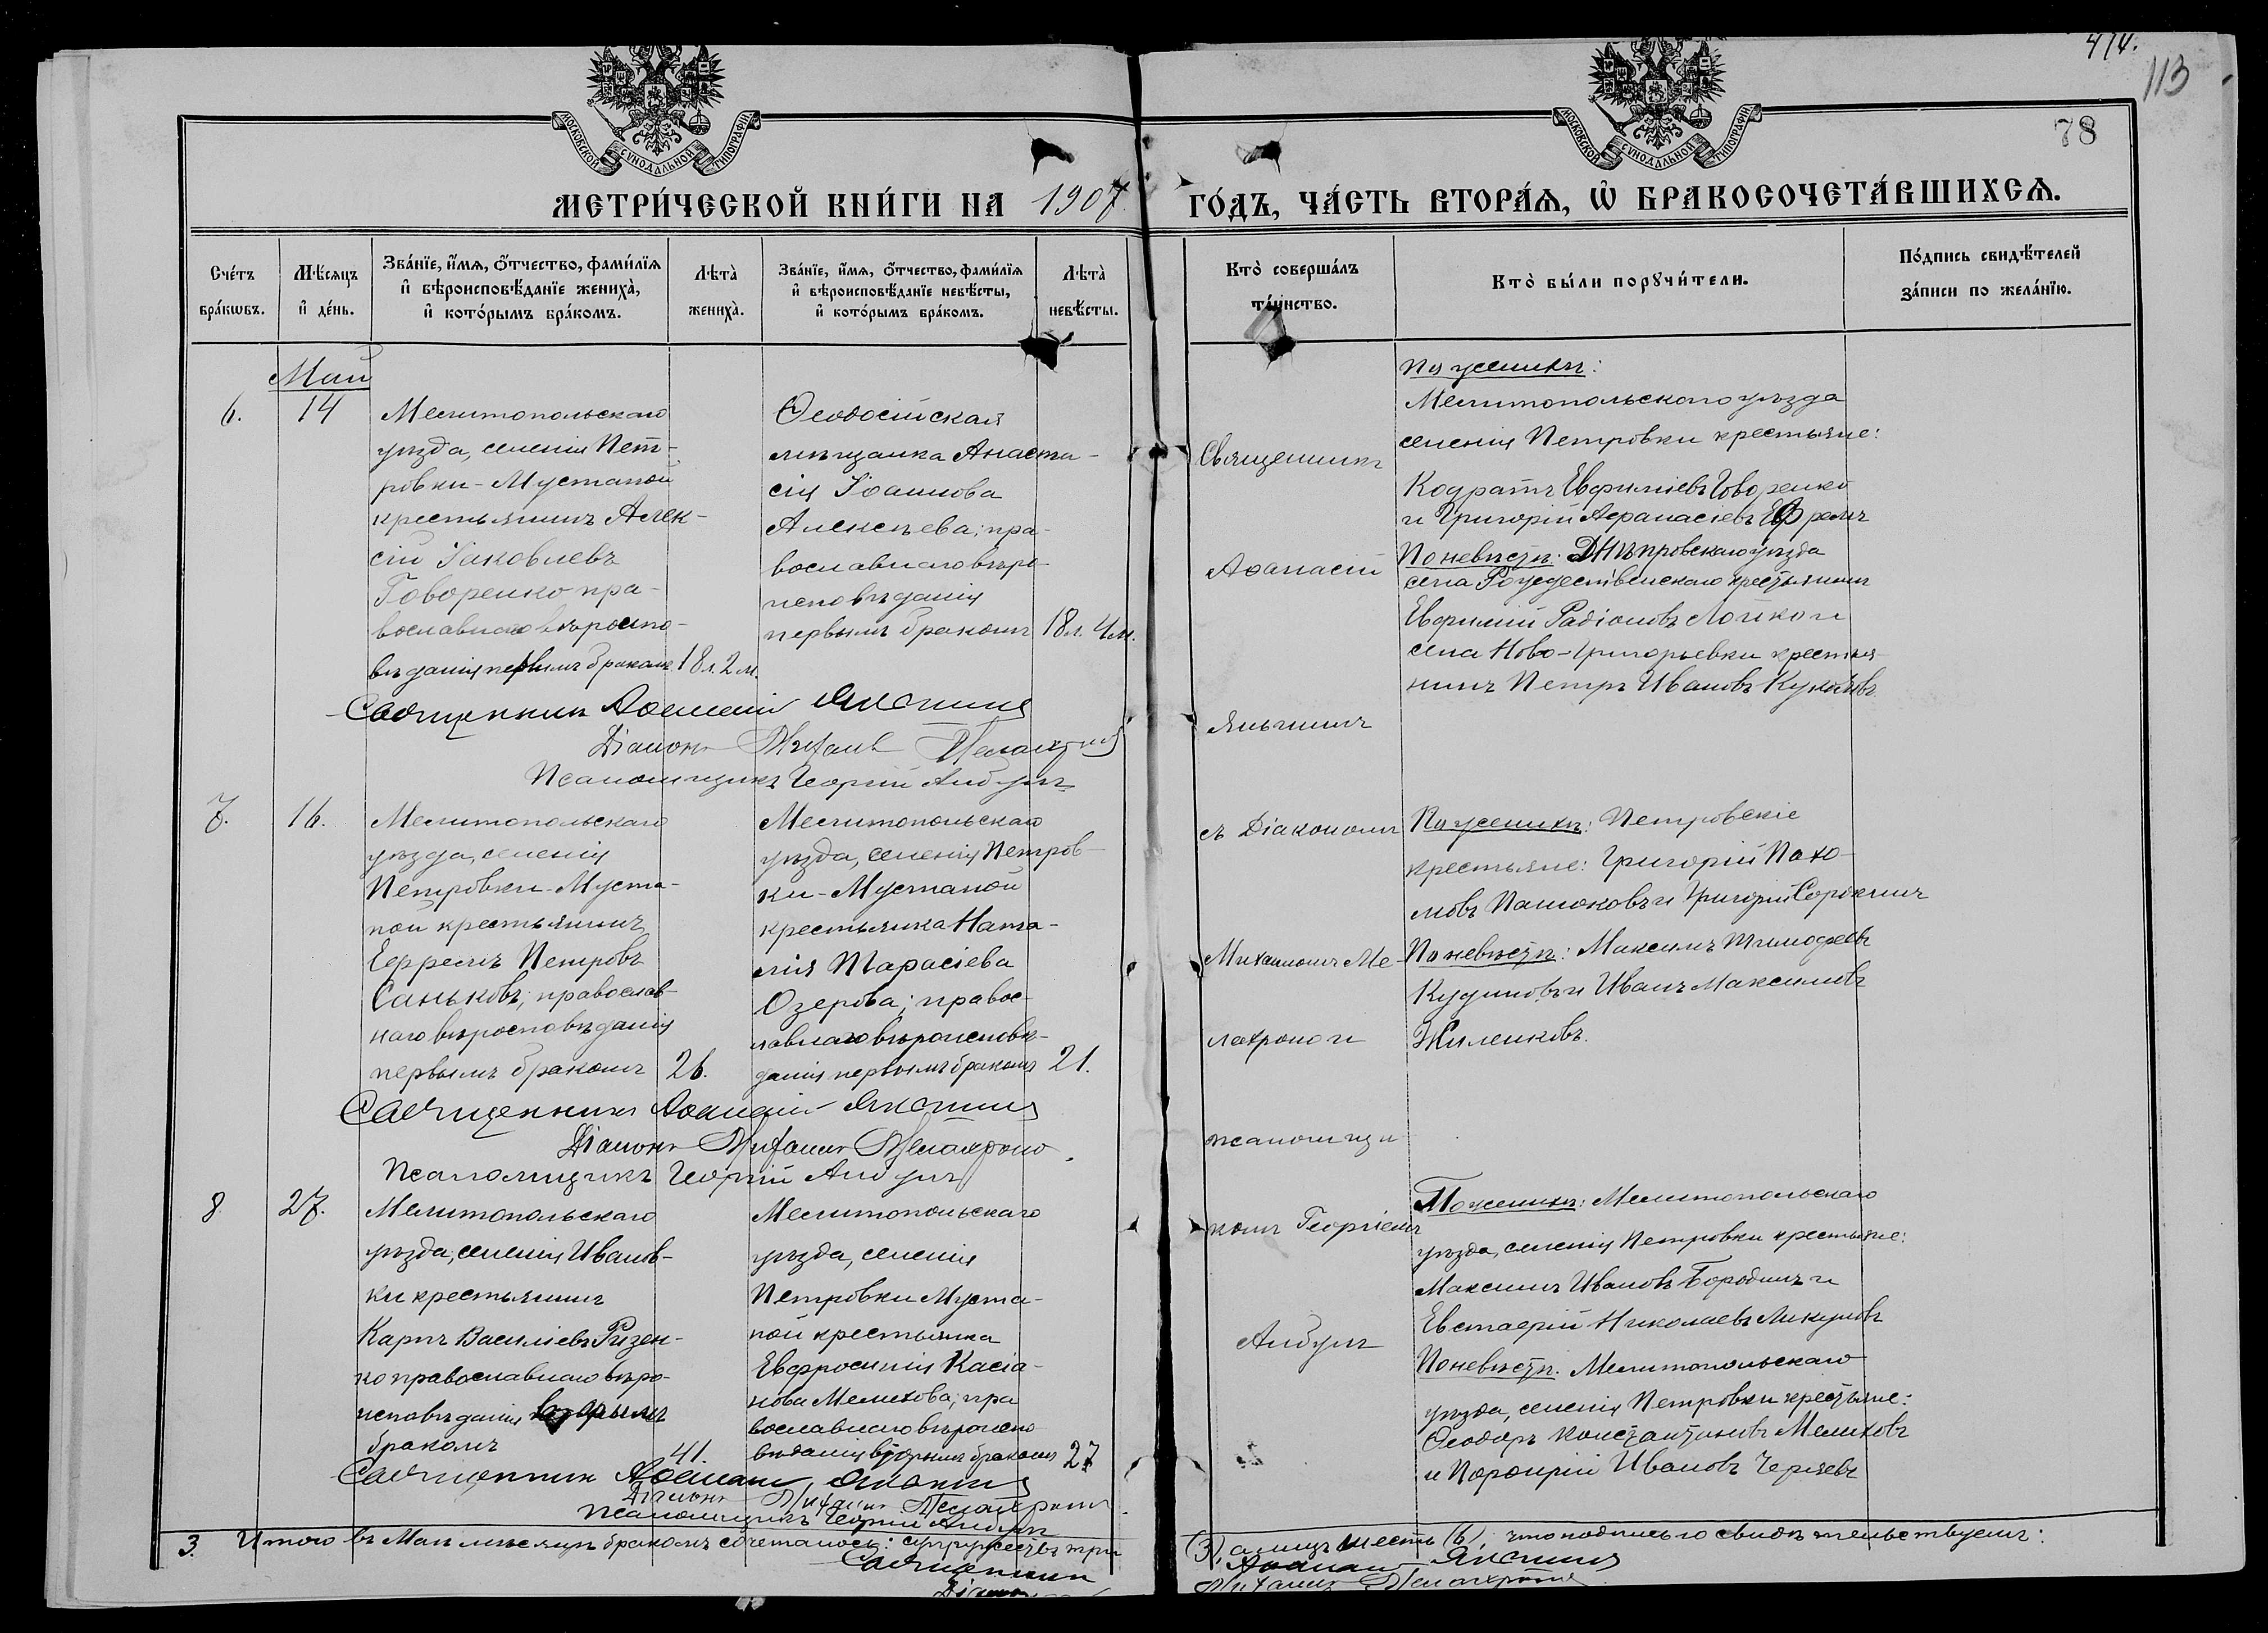 474.
113
78
МОСКОВСКОЙ СѴНОДАЛЬНОЙ ТИПОГРАФІИ
МОСКОВСКОЙ СѴНОДАЛЬНОЙ ТИПОГРАФІИ
МЕТРИ́ЧЕСКОЙ КНИ́ГИ НА 1907
ГО́ДЪ, ЧА́СТЬ ВТОРА́Ѧ, Ѽ БРАКОСОЧЕТА́ВШИХСѦ.
Сче́тъ бра́кѡвъ.
Мѣ́сѧцъ и҆ де́нь.
Зва́нїе, и҆́мѧ, ѻ҆́тчество, фами́лїѧ и҆ вѣроисповѣ́данїе жениха̀, и҆ кото́рымъ бра́комъ.
Лѣта̀ жениха̀.
Зва́нїе, и҆́мѧ, ѻ҆́тчество, фами́лїѧ и҆ вѣроисповѣ́данїе невѣ́сты, и҆ кото́рымъ бра́комъ.
Лѣта̀ невѣ́сты.
Кто̀ соверша́лъ та́инство.
Кто̀ бы́ли порꙋчи́тели.
По́дпись свидѣ́телей за́писи по жела́нїю.
Май
6.
14
Мелитопольскаго
уѣзда, селенія Пет-
ровки-Мустапой
крестьянинъ Алек-
сій Іаковлевъ
Говоренко пра-
вославнаго вѣроиспо-
вѣданія первымъ бракомъ
18 л. 2 м.
Ѳеодосійская
мѣщанка Анаста-
сія Іоаннова
Алексѣева; пра-
вославнаго вѣро-
исповѣданія
первымъ бракомъ
18 л. 4 м.
Священникъ
Аѳанасій
Яньшинъ
По женихѣ:
Мелитопольскаго уѣзда
селенія Петровки крестьяне:
Кодратъ Евфиміевъ Говоренко
и Григорій Аѳанасіевъ Ефремъ
По невѣстѣ: Днѣпровскаго уѣзда
села Рождественскаго крестьянинъ
Евфимій Радіоновъ Лойко и
села Ново-Григорьевки крестья-
нинъ Петръ Ивановъ
Священникъ Аѳанасій
Діаконъ Михаилъ
Псаломщикъ Георгій Албулъ
7.
16.
Мелитопольскаго
уѣзда, селенія
Петровки-Муста-
пой крестьянинъ
Ефремъ Петровъ
Саньковъ; православ-
наго вѣроисповѣданія
первымъ бракомъ
26.
Мелитопольскаго
уѣзда, селенія Петров-
ки-Мустапой
крестьянка Ната-
лія Тарасіева
Озерова; правос-
лавнаго вѣроисповѣ-
данія первымъ бракомъ
21.
съ Діакономъ
Михаиломъ Ме-
лахроно и
псаломщи-
По женихѣ: Петровскіе
крестьяне: Григорій Пахо-
мовъ Пашоковъ и Григорій Сорокинъ
По невѣстѣ: Максимъ Тимофеевъ
Кудиновъ и Иванъ Максимовъ
Жиленковъ.
Священникъ Аѳанасій
Діаконъ Михаилъ Мелахроно
Псаломщикъ Георгій Албулъ
8
27.
Мелитопольскаго
уѣзда, селенія Иванов-
ки крестьянинъ
Карпъ Василіевъ Ризен-
ко православнаго вѣро-
исповѣданія вторымъ
бракомъ
41.
Мелитопольскаго
уѣзда, селенія
Петровки Муста-
пой крестьянка
Евфросинія Касіа-
нова Мелихова; пра
вославнаго вѣроиспо-
вѣданія вторымъ бракомъ
27
комъ Георгіемъ
Албулъ
По женихѣ: Мелитопольскаго
уѣзда, селенія Петровки крестьяне:
Максимъ Ивановъ Бородинъ и
Евстафій Николаевъ Ликуновъ
По невѣстѣ. Мелитопольскаго
уѣзда, селенія Петровки крестьяне:
Ѳеодоръ Константиновъ Мелиховъ
и Порфирій Ивановъ
Священникъ Аѳанасій
Діаконъ Михаилъ
Псаломщикъ Георгій Албулъ
3. Итого въ Маѣ мѣсяцѣ бракомъ сочеталось: супружествъ три (3), а лицъ шесть (6), что подписью свидѣтельствуемъ:
Священникъ Аѳанасій
Діаконъ Михаилъ